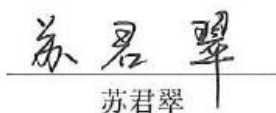 苏君翠
苏君翠